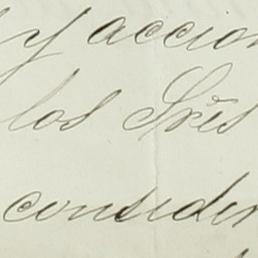 y accion
los Sres
consider